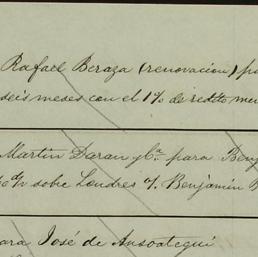 Rafael Beraza (renovacion) p
seis meses con el 1% de redito men
Martin Daran y Ca. para Benj
d/v sobre Londres o/. Benjamin B
ara José de Ansoategui